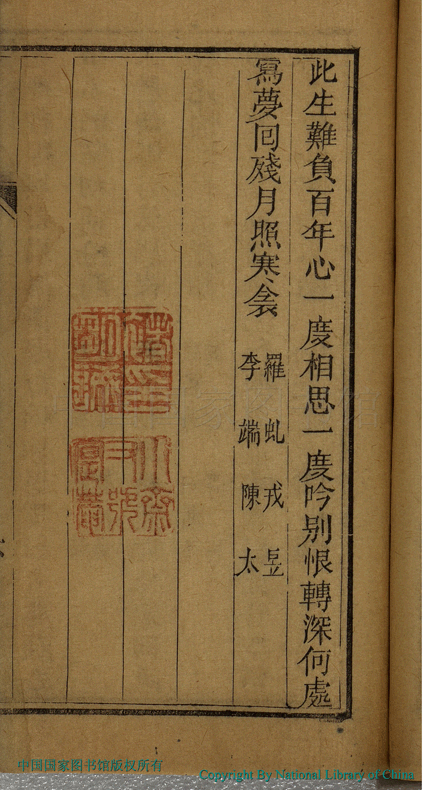 此生難負百年心一度相思一度吟别恨轉深何處
寫夢回殘月照寒衾
羅虬戎昱
李端陳太
中国国家图书馆版权所有
Copyright By National Library of China